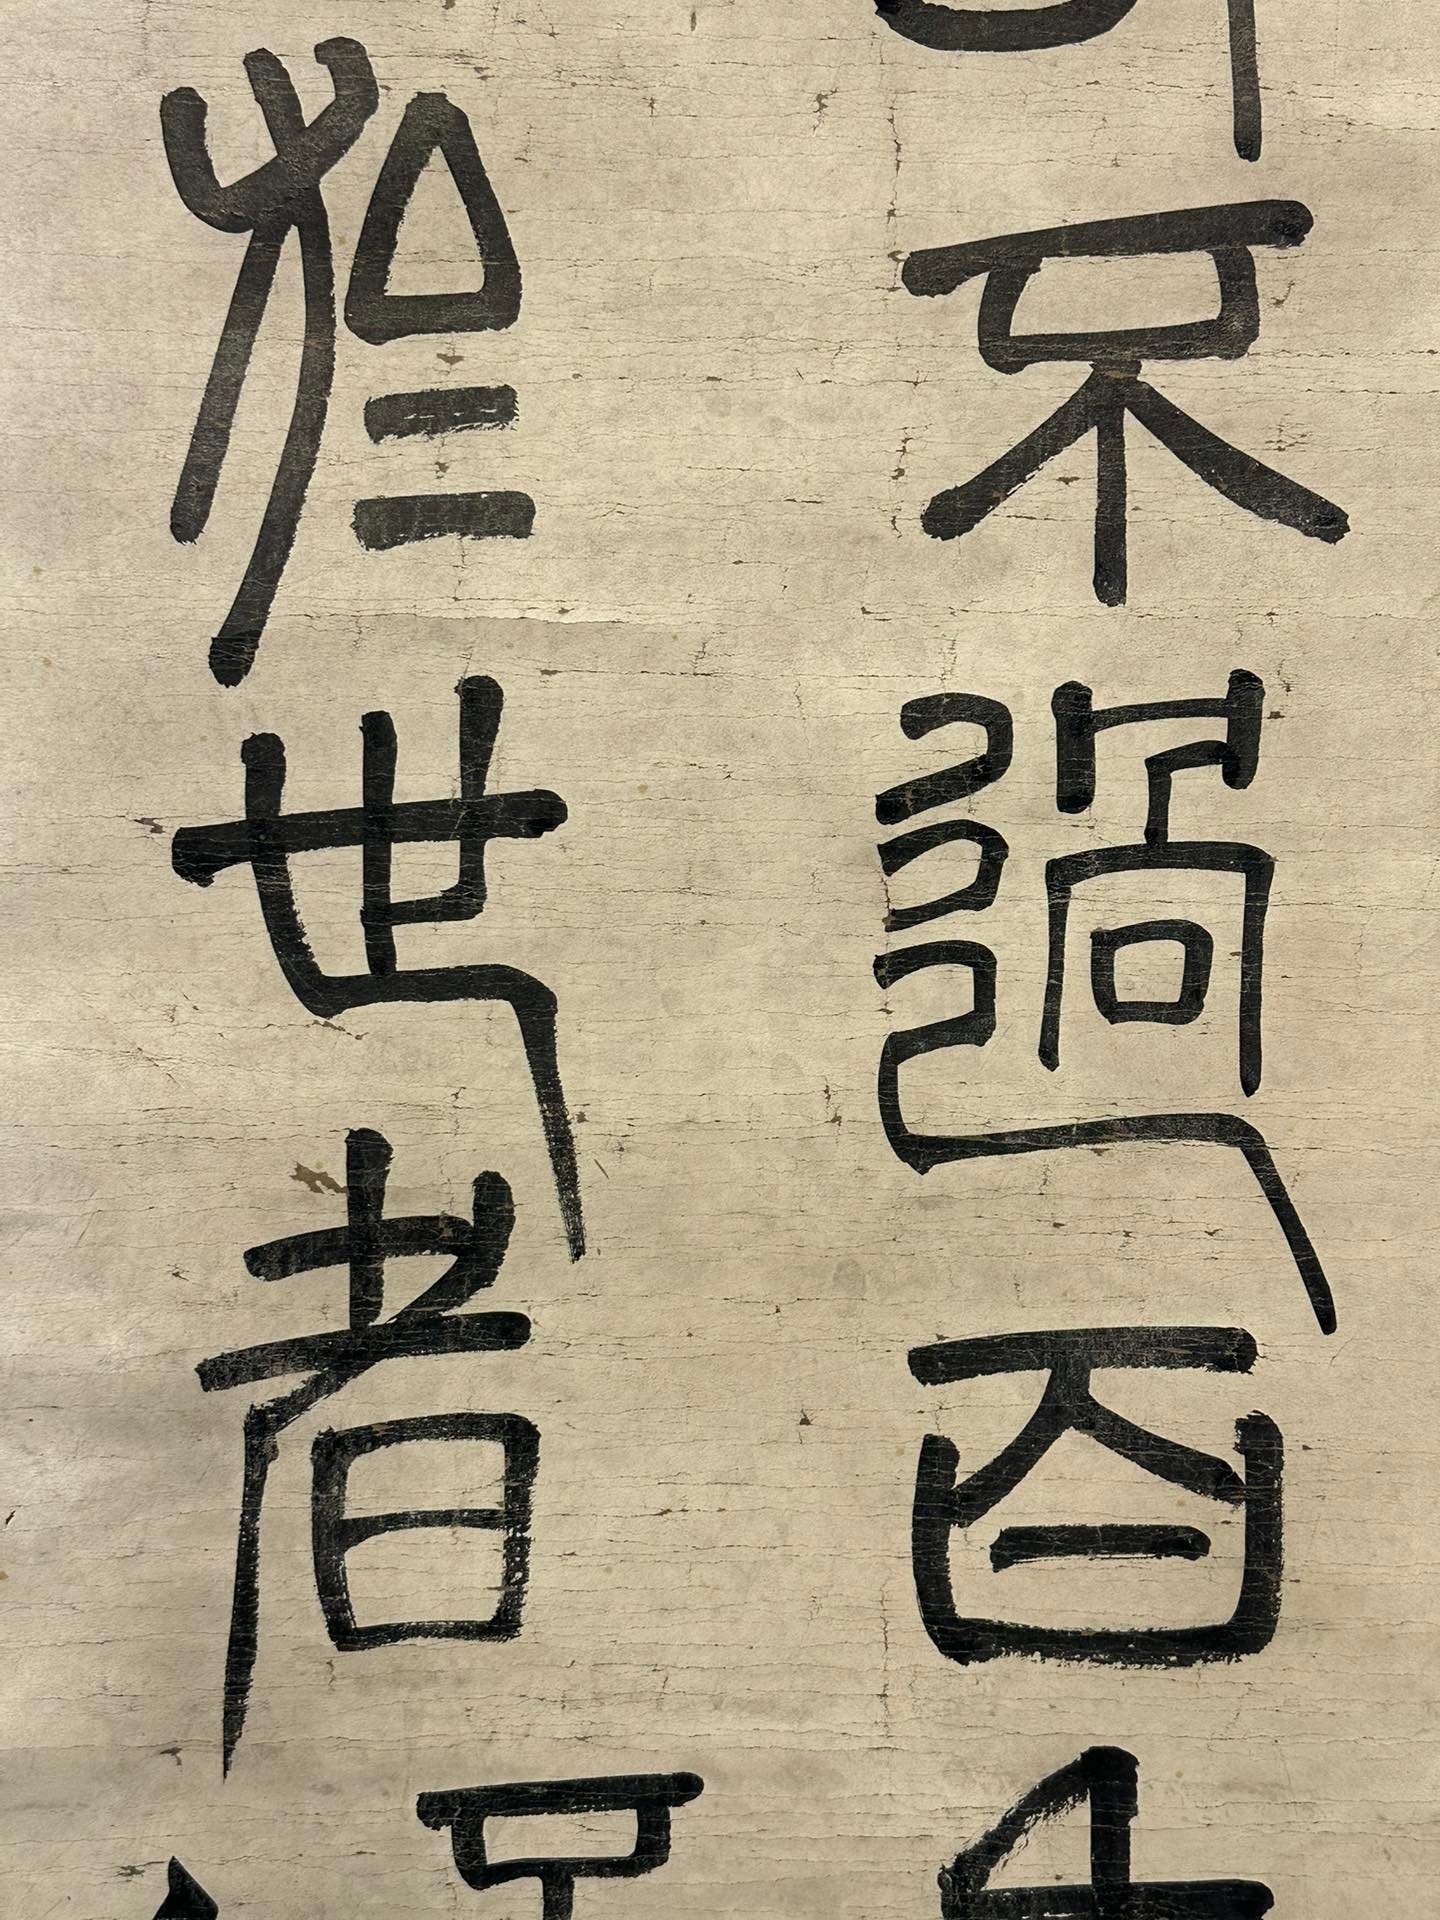 不過百
於世者